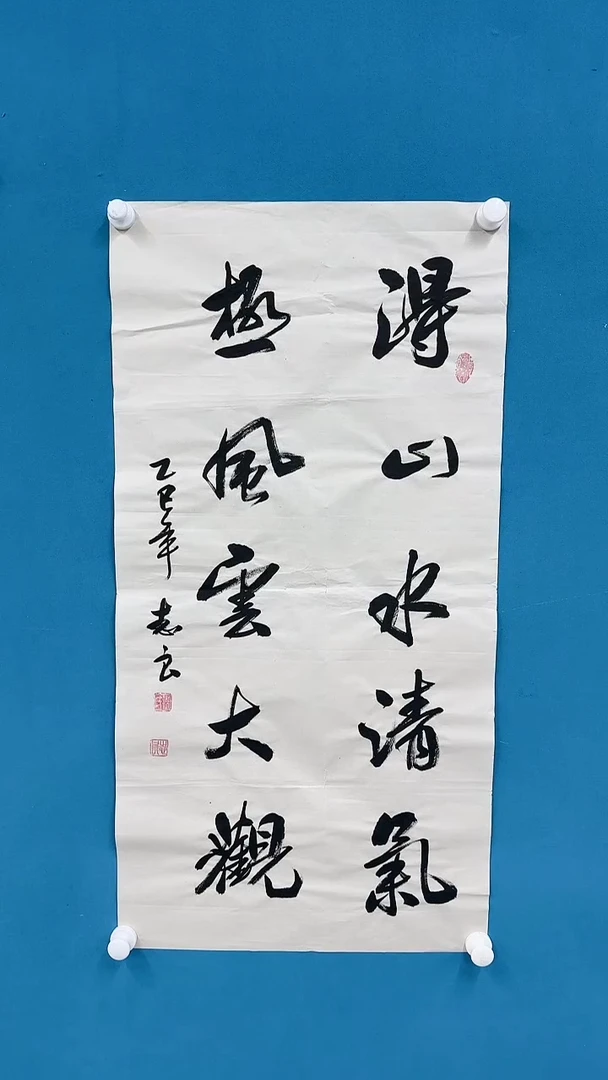 得山水清氣
極風雲大觀
乙巳年 志云